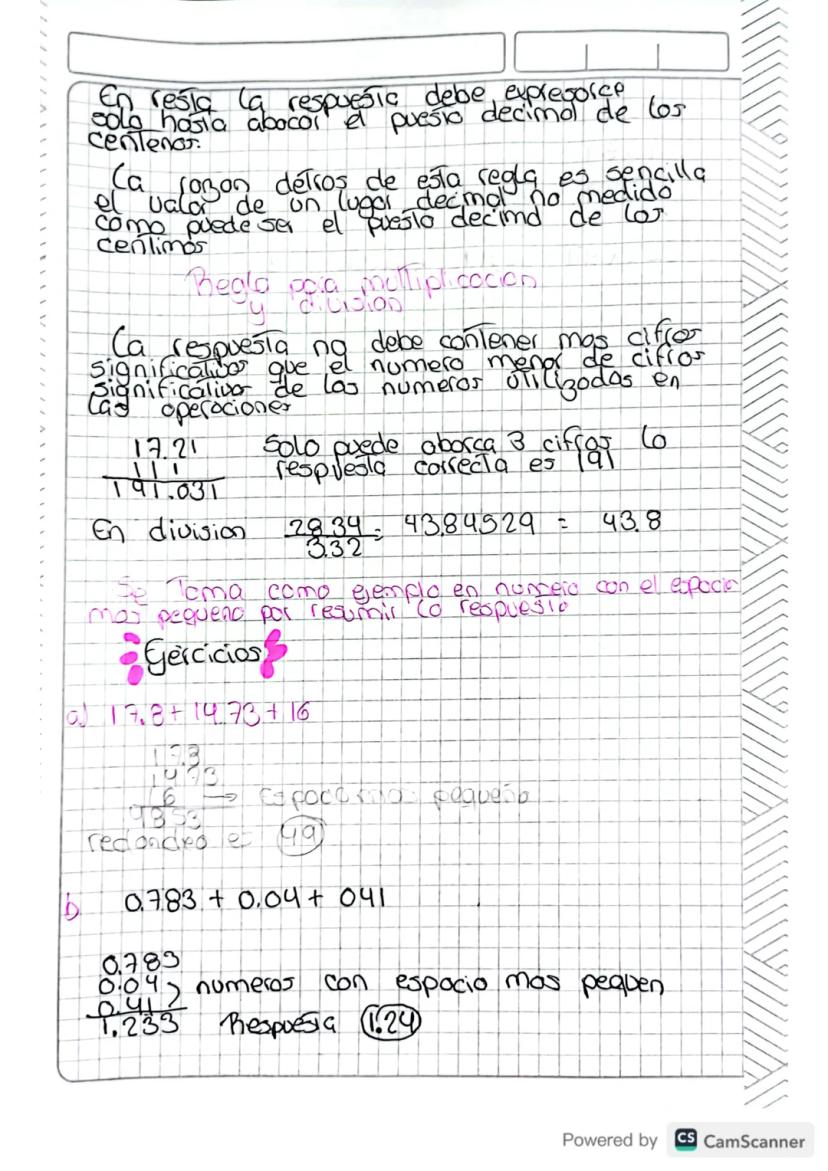 En resta la respuesta debe expresarce
solo hasta abacar el puesto decimal de los
centenas.
La razon detras de esta regla es sencilla
el valor de un lugar decimal no medido
como puede ser el puesto decimal de los
centimos
Regla para multiplicacion
y division
La respuesta no debe contener mas cifras
significativas que el numero menor de cifras
significativas de los numeros utilizados en
las operaciones
17.21 Solo puede aborca 3 cifras lo
11 1 respuesta correcta es 191
191.031
En division 28.34 = 43.84529 = 43.8
3.32
Se Toma como ejemplo en numero con el espacio
mas pequeno por resumir la respuesta
Ejercicios
a) 17.8 + 14.73 + 16
17.8
14.73
16 → espacio mas pequeño
redondeo e 49
b 0.783 + 0.04 + 041
0.783
0.04 numeros con espacio mas pequen
0.41
1.233 Respuesta 1.24
Powered by CS CamScanner